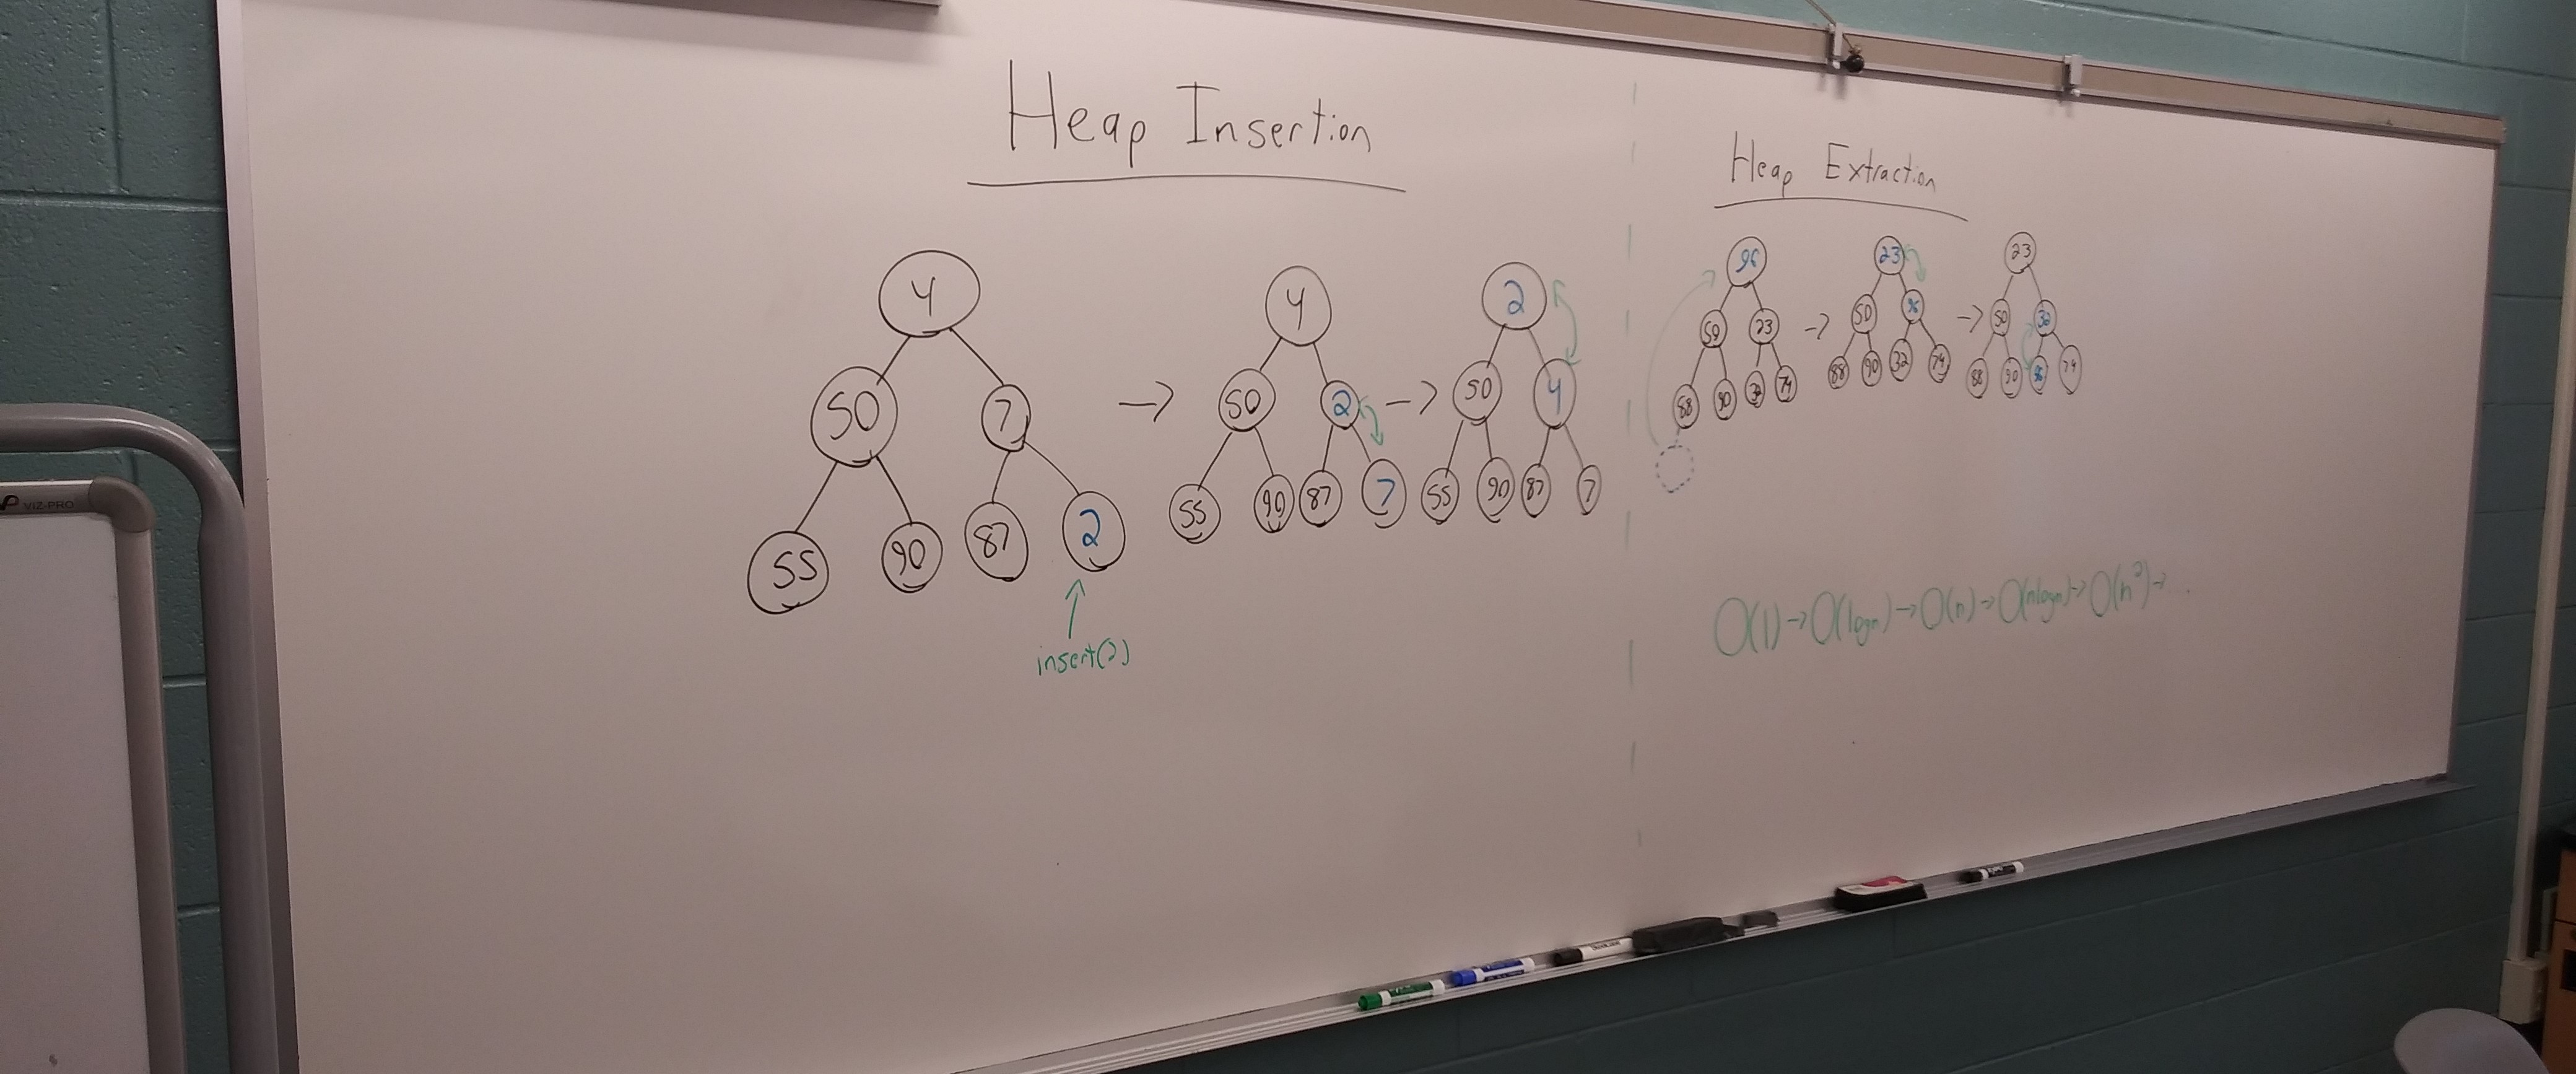 Heap Insertion
4
50 7
55 90 87 2
insert(2)
→
4
50 2
55 90 87 7
→
2
50 4
55 90 87 7
Heap Extraction
96
50 23
88 90 32 74
→
23
50 96
88 90 32 74
→
23
50 32
88 90 96 74
O(1)→O(logn)→O(n)→O(nlogn)→O(n²)→ .
VIZ-PRO